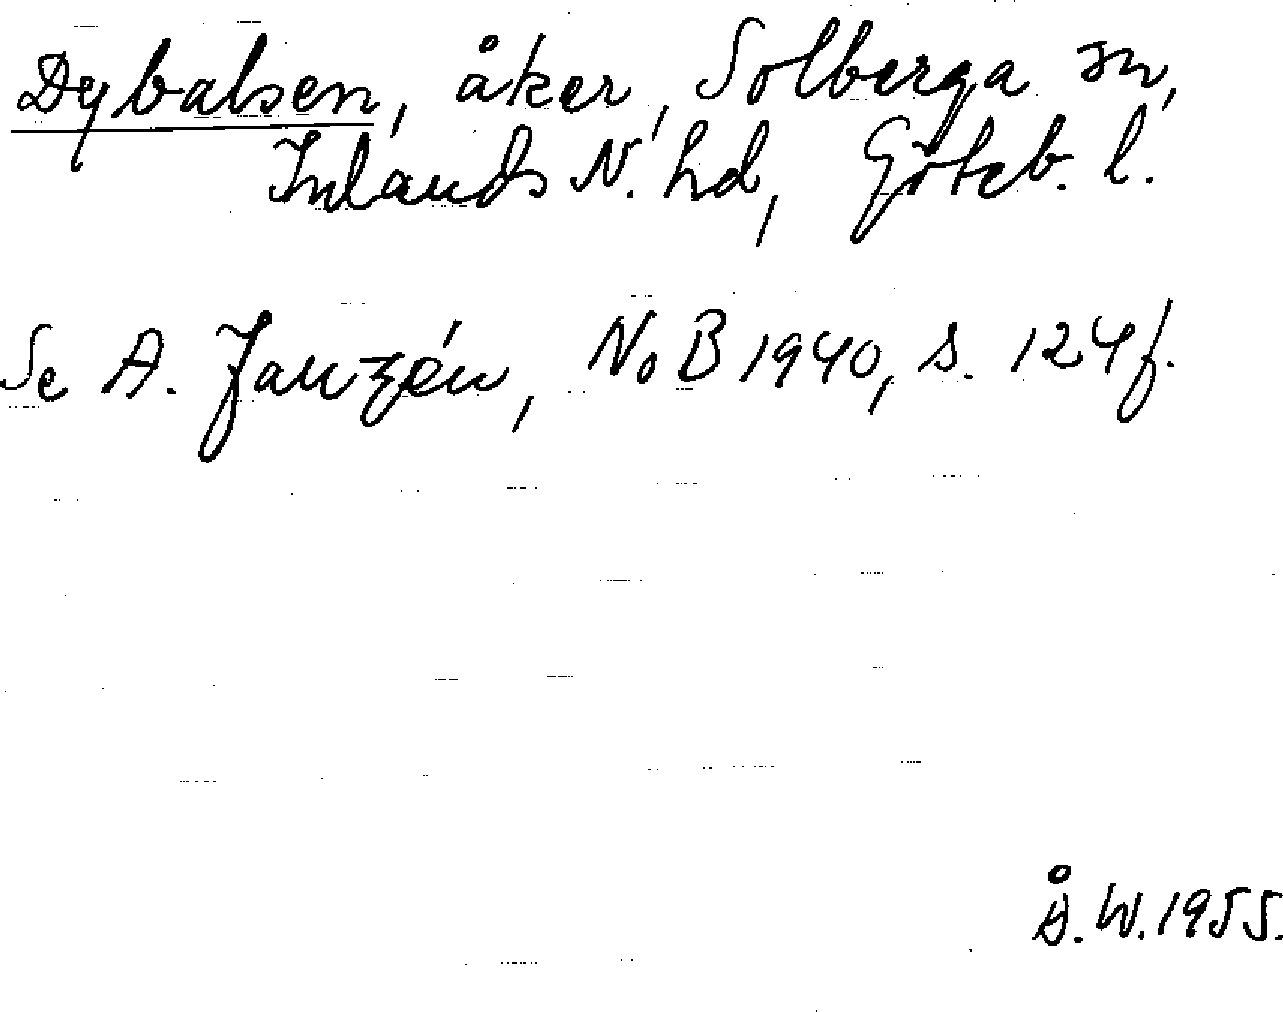 Dybalsen, åker, Solberga sn,
Inlands N. hd, Göteb. l.
Se A. Janzén, NoB 1940, s. 124f.
Å.W. 1955.